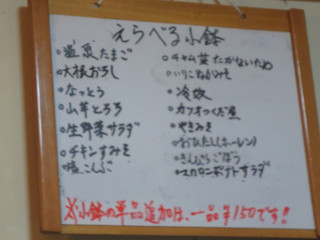 えらべる小鉢
温泉たまご
大根おろし
なっとう
山芋とろろ
生野菜サラダ
チキンすみそ
塩こんぶ
チャム菜たかないため
いりこ みそ
冷奴
カツオつくだ煮
やきみそ
おひたし(ホーレン)
きんぴらごぼう
マカロニポテトサラダ
※小鉢の単品追加は、一品¥150です!!